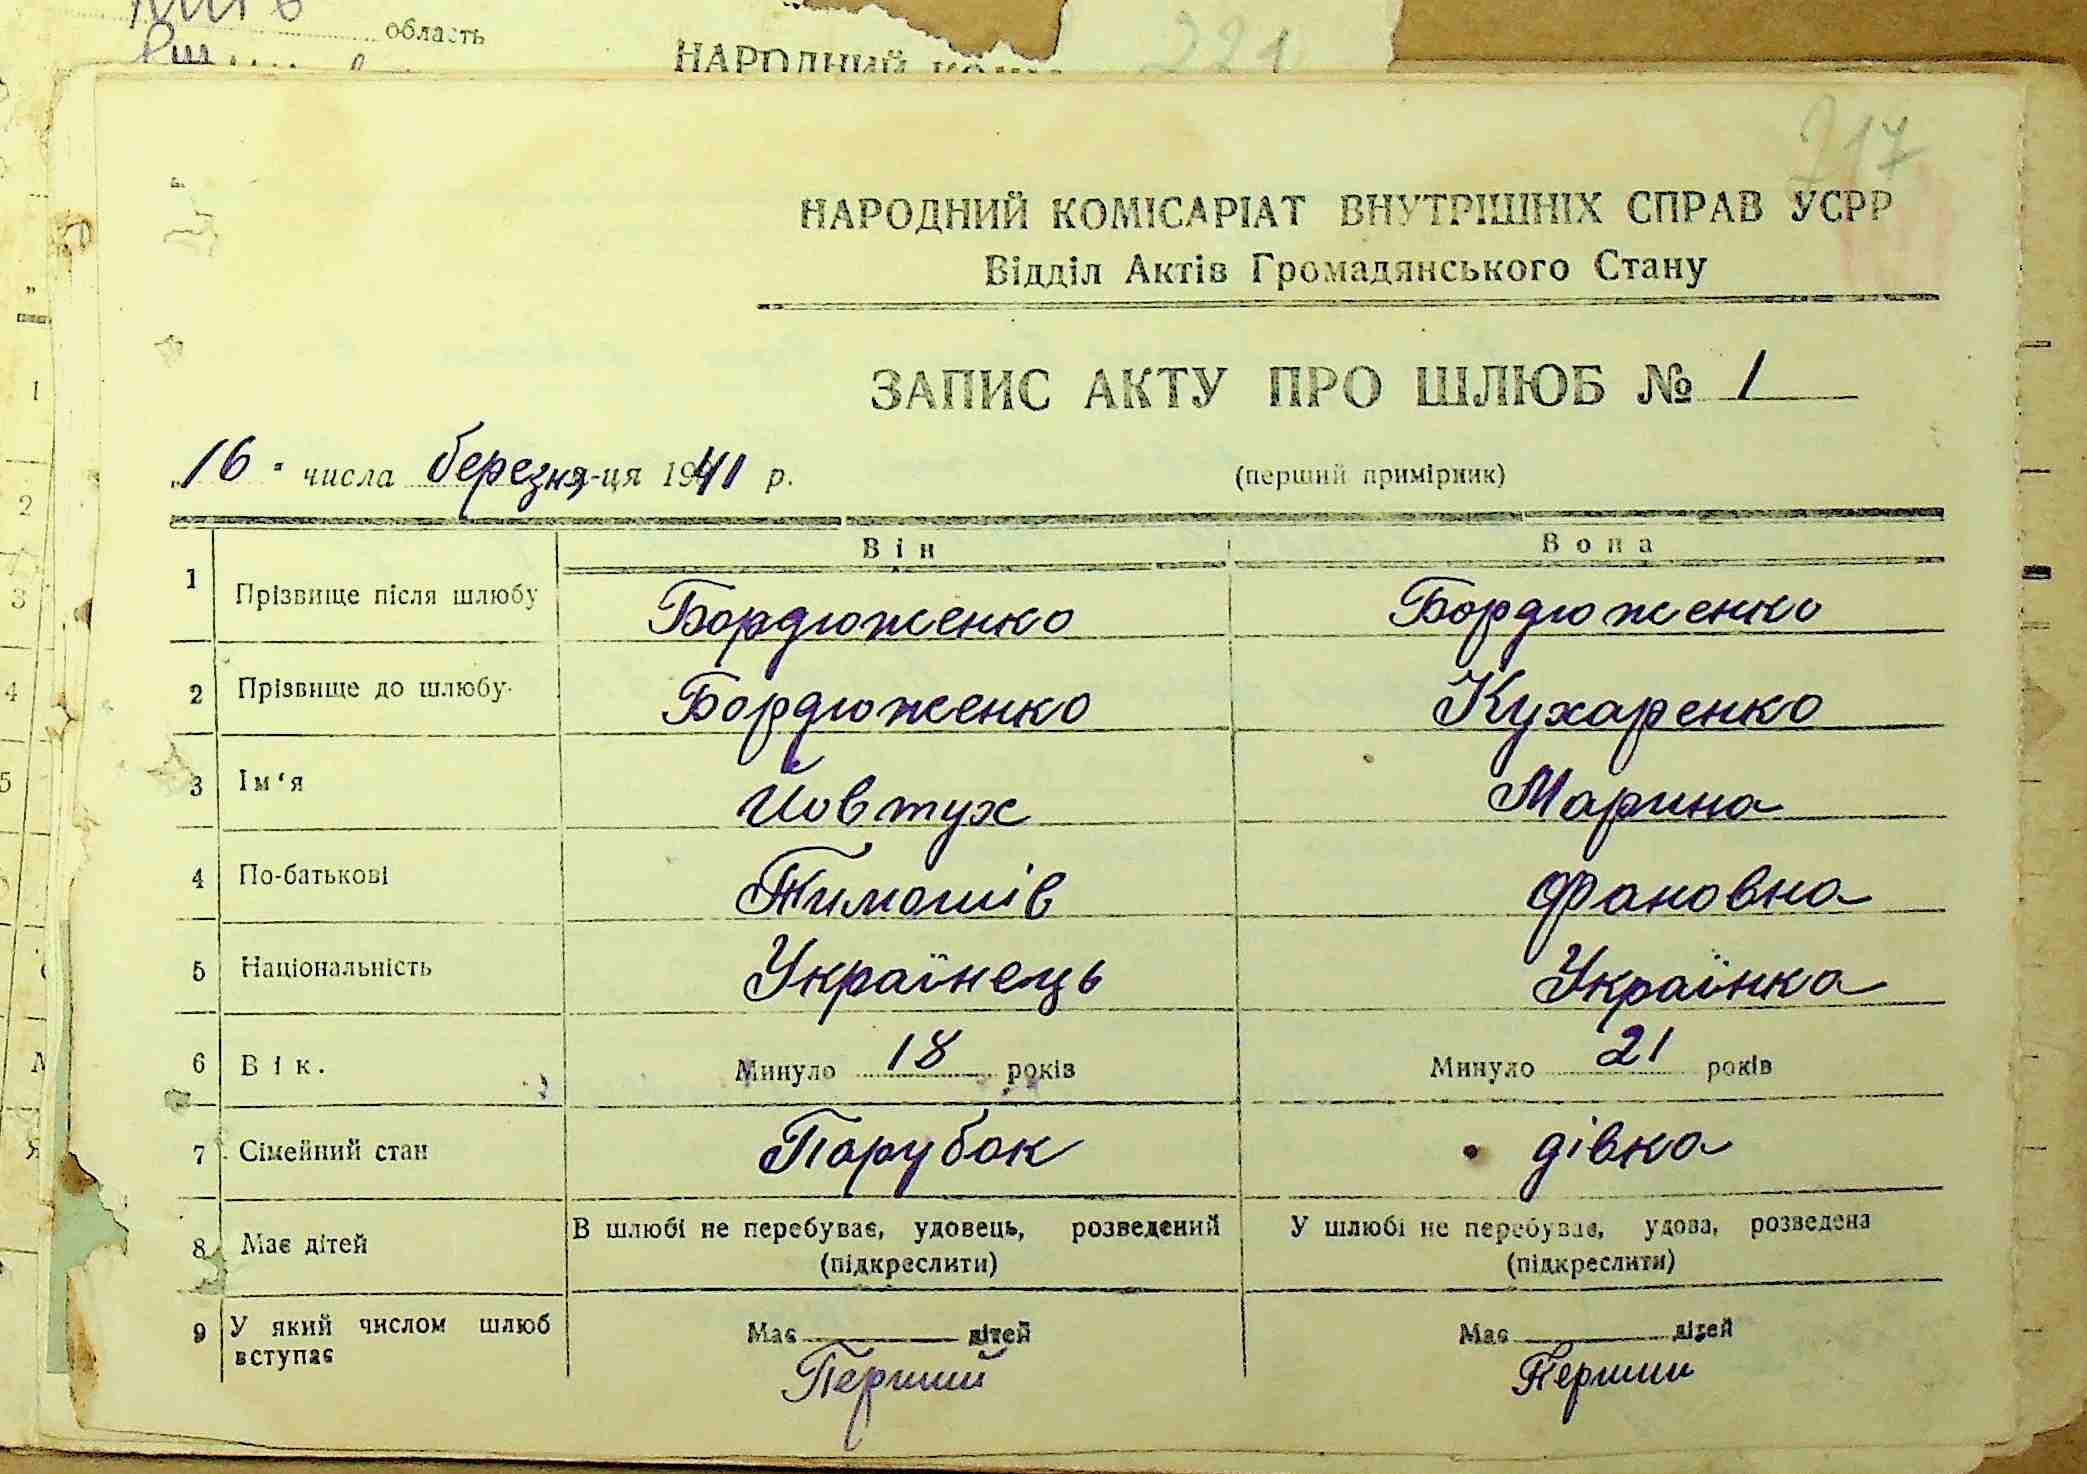 область
НАРОДНИЙ
221
217
НАРОДНИЙ КОМІСАРІАТ ВНУТРІШНІХ СПРАВ УСРР
Відділ Актів Громадянського Стану
ЗАПИС АКТУ ПРО ШЛЮБ № 1
„16" числа березня-ця 1941 р. (перший примірник)
Він Вона
1 Прізвище після шлюбу Бордюженко Бордюженко
2 Прізвище до шлюбу Бордюженко Кухаренко
3 Ім'я Йовтух Марина
4 По-батькові Тимошів Фановна
5 Національність Українець Українка
6 Вік. Минуло 18 років Минуло 21 років
7 Сімейний стан Парубок дівка
8 Має дітей В шлюбі не перебуває, удовець, розведений У шлюбі не перебуває, удова, розведена
(підкреслити) (підкреслити)
9 У який числом шлюб вступає Має дітей Має дітей
Перший Перший